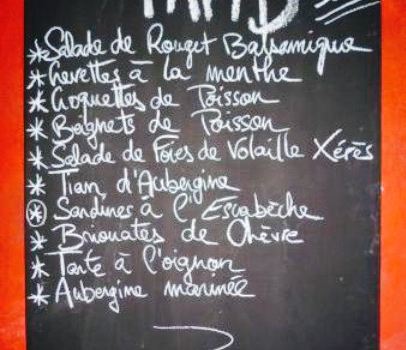 TAPAS
* Salade de Rouget Balsamique
* Crevettes à la menthe
* Croquettes de Poisson
* Beignets de Poisson
* Salade de Foies de Volaille Xérès
* Tian d'Aubergine
* Sardines à l'Escabèche
* Briouates de Chèvre
* Tarte à l'oignon
* Aubergine marinée